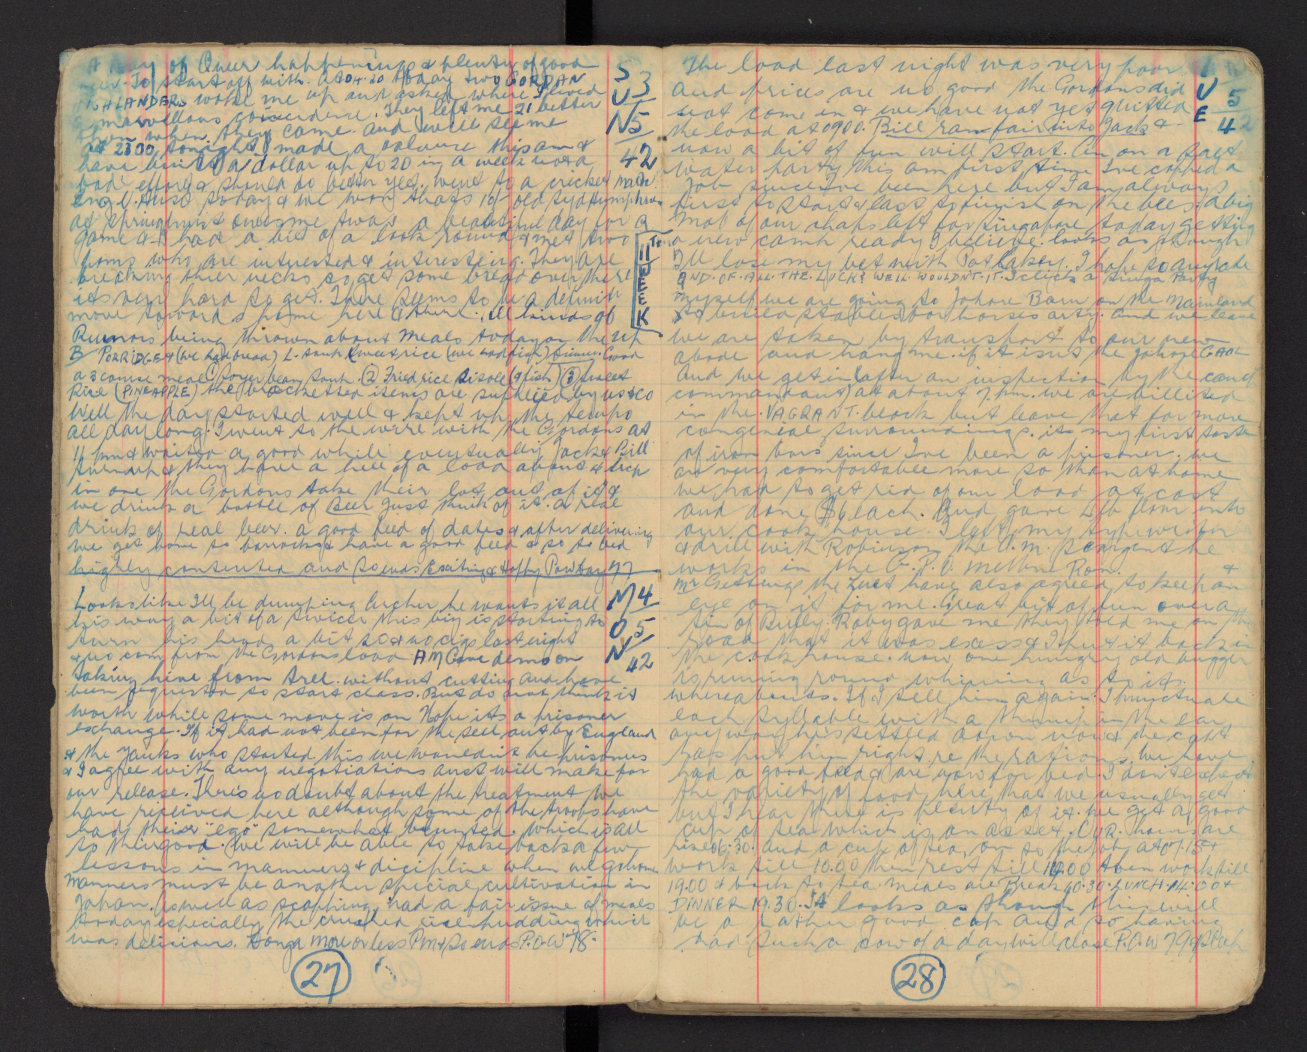 A Day of Queer happenings & plenty of good
To start off with. at 04.20 today two GORDAN
HIGHLANDERS woke me up and asked where I lived
marvellous coincidence. They left me 21 better
when they came. and will see me
at 2300 tonight I made a balance this am &
have built a dollar up to 20 in a week not a
bad effort & should do better yet. went to a cricket match
Engl. Aust today & we won
at Springvale and some two a beautiful day for a
game & I had a bit of a look round & met two
poms who are interested & interesting. They are
breaking their necks to get some bread over there
its very hard to get. There seems to be a definite
move towards home here & there. All kinds of
Rumors being thrown about meals today on the up
B PORRIDGE & (we had bread) L. soup sweet rice (we had fish) Dinner. Good
a 3 course meal (1) Soyer bean soup. (2) Fried rice risole (& fish) (3) sweet
Rice (PINEAPPLE) the bracketted items are supplied by us & co
Well the day started well & kept up the tempo
all day long. I went to the wire with the Gordons at
11 pm & waited a good while eventually Jack & Bill
turned up & they have a hell of a load about & trip
in one the Gordons take their lot out of it &
we drink a bottle of Beer just think of it. a real
drink of real beer. a good feed of dates & after delivering
we get home to barracks & have a good feed & so to bed
highly contented and so ends Exciting & Happy POW Day 77
S U N 3/5/42
11TH WEEK
Looks like I'll be dumping Archer, he wants it all
his way a bit of a twicer this big is starting to
turn his head a bit SC & no cigs last night
& no com from the Gordons load AM Gave demo on
taking line from tree. without cutting and have
been requested to start class. But do not think it
worth while some move is on Hope its a prisoner
exchange. If it had not been for the sell out by England
& the Yanks who started this we wouldnt be prisoners
& I agree with any negotiations Aust will make for
our release. Theres no doubt about the treatment we
have received here although some of the troops have
had their "ego" somewhat blunted. which is all
to their good. We will be able to take back a few
lessons in manners & dicipline when we go home
Manners must be another special cultivation in
Japan. as well as scalping. had a fair issue of meals
today especially the crushed rice pudding which
was delicious. Songa more or less Pm & so ends P.O.W 78.
M O N 4/5/42
27
The load last night was very poor
and prices are no good the Gordons did
not come in & we have not yet quitted
the load at 0900. Bill ran fair into Jack &
now a bit of fun will start. Am on a salt
water party this am first time Ive copped a
job since Ive been here but I am always
first to start & last to finish on the bees. A big
mob of our chaps left for Singapore today getting
a new camp ready I believe. looks as though
I'll lose my bet with Pat Casey. I hope to anyrate
AND. OF. ALL THE. LUCK? WELL WOULDNT. IT. I click a Singa Party
myself we are going to Johore Baru on the Mainland
to build stables for horses arty. and we leave
we are taken by transport to our new
abode and hang me. if it isnt the Johore GAOL
And we get in (after an inspection by the camp
commandant) at about 7.pm. we are billited
in the. VAGRANT. block but leave that for more
congeneal surroundings. its my first taste
of iron bars since Ive been a prisoner. we
are very comfortable more so than at home
we had to get rid of our load at cost
and done $6 each. Bud gave 4 lb flour into
our cook house. I left my typewriter
& drill with Robinson the Q.M. Seargent he
works in the G.P.O. Melbn Pom. &
Mr Gettings the Lieut have also agreed to keep an
eye on it for me. Great bit of fun over a
tin of Bully. Roby gave me they told me on the
road that it was excess & I put it back in
the cook house. now one hungry old bugger
is running round whining as to its
whereabouts. If I tell him again I'll punctuate
each syllable with a thump in the ear
anyway hes settled down now & the capt
has put him right re the rations. we have
had a good feed & are now for bed. I dont expect
the variety of food here that we usually get
but I hear there is plenty of it. we get a good
cup of tea which is an asset. Our. hours are
rise 6.30. and a cup of tea, on to the job at 07.15 &
work till 10.00 then rest till 14.00 then work till
19.00 & back to tea. meals are Break 10.30. LUNCH 14.00 &
DINNER 19.30. It looks as though this will
be a rather good cop and so having
had such a cow of a day will close P.O.W 79
T U E 5/5/42
28